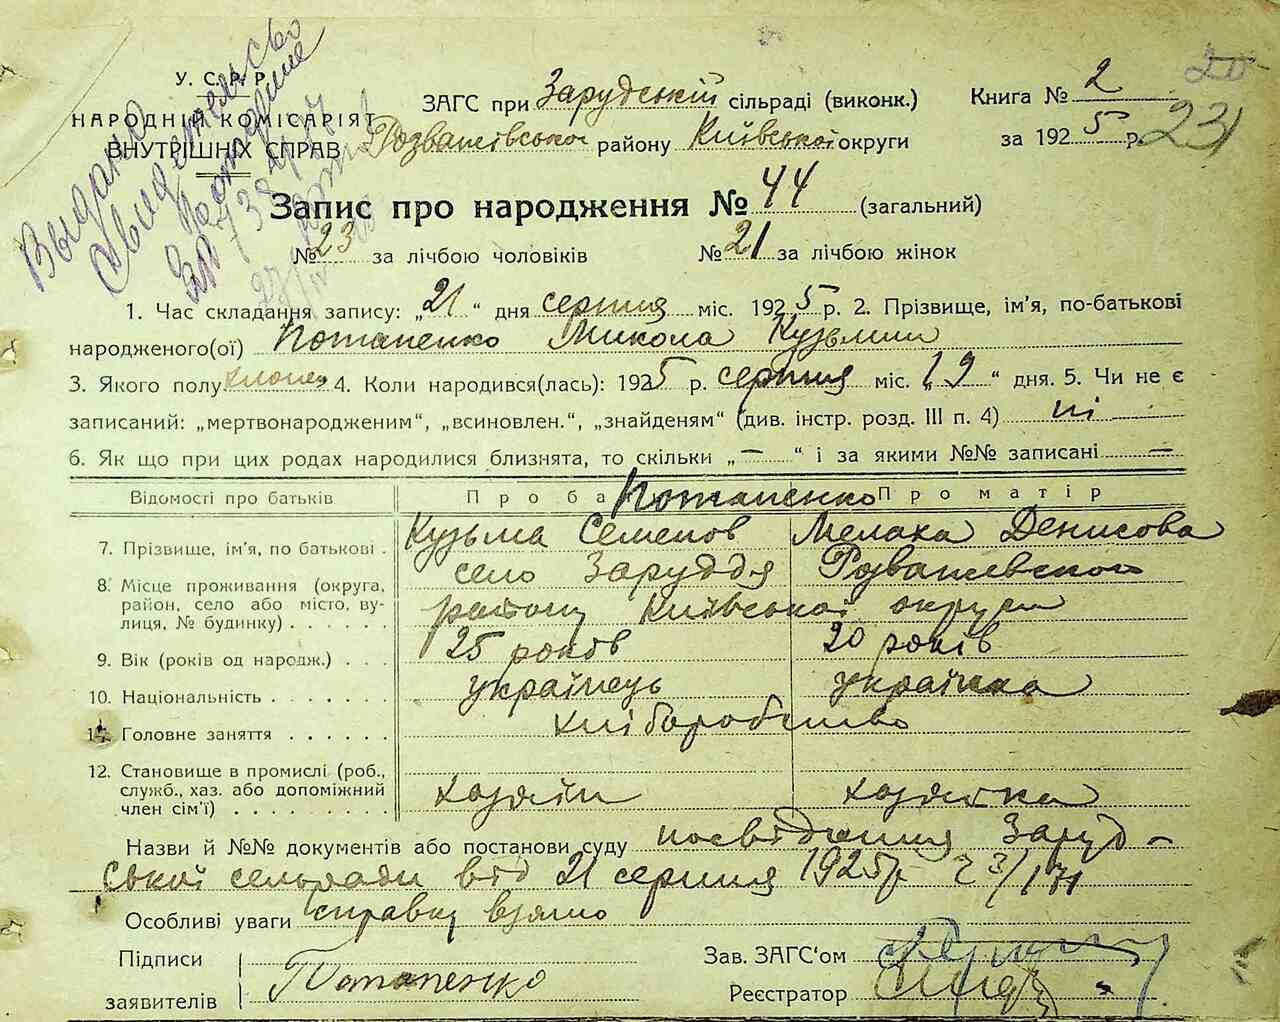 У. С. Р. Р.
НАРОДНІЙ КОМІСАРІЯТ
ВНУТРІШНІХ СПРАВ
Выдано
Свидетельство
повторне
ЗАГС при Зарудській сільраді (виконк.) Книга № 2
Розважівської району Київської округи за 1925 р.
231
Запис про народження № 44 (загальний)
№ 23 за лічбою чоловіків № 21 за лічбою жінок
1. Час складання запису: „21“ дня серпня міс. 1925 р. 2. Прізвище, ім'я, по-батькові
народженого(ої) Потапенко Микола Кузьмин
3. Якого полу хлопец 4. Коли народився(лась): 1925 р. серпня міс. „19“ дня. 5. Чи не є
записаний: „мертвонародженим“, „всиновлен.“, „знайденям“ (див. інстр. розд. III п. 4) ні
6. Як що при цих родах народилися близнята, то скільки „—“ і за якими №№ записані —
Відомості про батьків Про ба Потапенко Про матір
7. Прізвище, ім'я, по батькові . Кузьма Семенов Мелаха Денисова
8. Місце проживання (округа, район, село або місто, вулиця, № будинку) . . . . . . село Заруддя Розважевского
району Київської округи
9. Вік (років од народж.) . . . 25 років 20 років
10. Національність . . . . . . . українець українка
11. Головне заняття . . . . . . хліборобство
12. Становище в промислі (роб., служб., хаз. або допоміжний член сім'ї) . . . . . . . . . хазяїн хазяйка
Назви й №№ документів або постанови суду посвідчення Заруд-
ської сельради від 21 серпня 1925р
Особливі уваги справку взято
Підписи заявителів Потапенко
Зав. ЗАГС'ом
Реєстратор